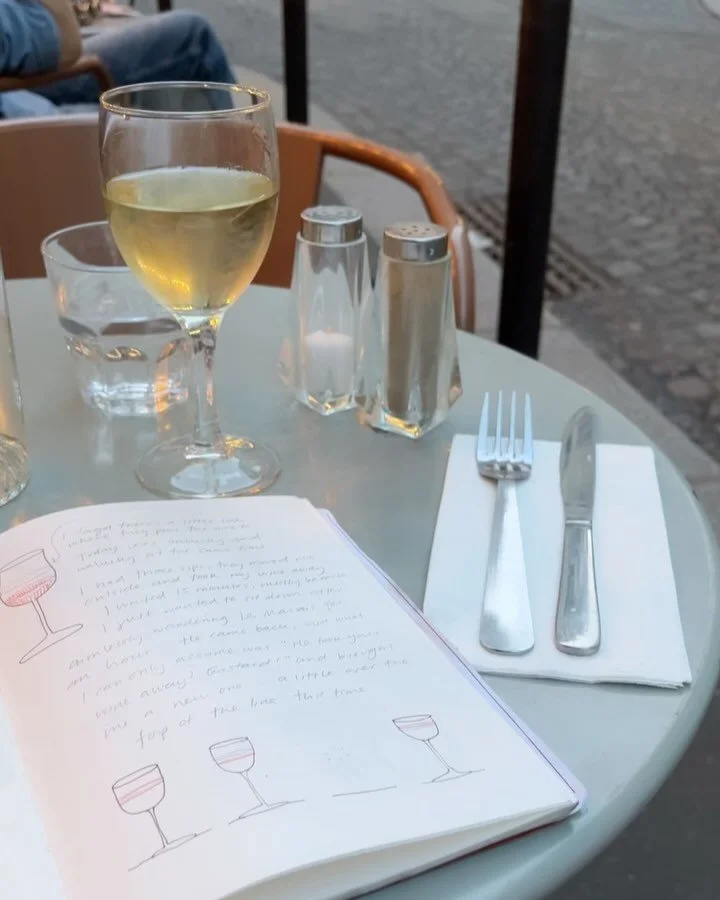 where they pour the wine
Today was
I had three sips, they moved me
outside and took my wine away
I waited 15 minutes, mostly because
I just wanted to sit down after
aimlessly wandering Le Marais for
an hour. He came back, said what
I can only assume was "He took your
wine away? Bastard!" and brought
me a new one - a little over the
top of the line this time